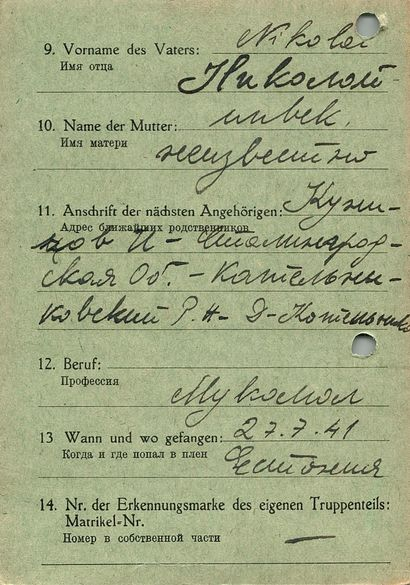 9. Vorname des Vaters: Nikolai
Имя отца Николай
10. Name der Mutter: unbek.
Имя матери неизвестно
11. Anschrift der nächsten Angehörigen: Кузне-
Адрес ближайших родственников
цов И - Сталинград-
ская Об. - Кательни-
ковский Р. Н - Д - Котельнико
12. Beruf:
Профессия Мукомол
13 Wann und wo gefangen: 27.7.41
Когда и где попал в плен Естония
14. Nr. der Erkennungsmarke des eigenen Truppenteils:
Matrikel-Nr.
Номер в собственной части —